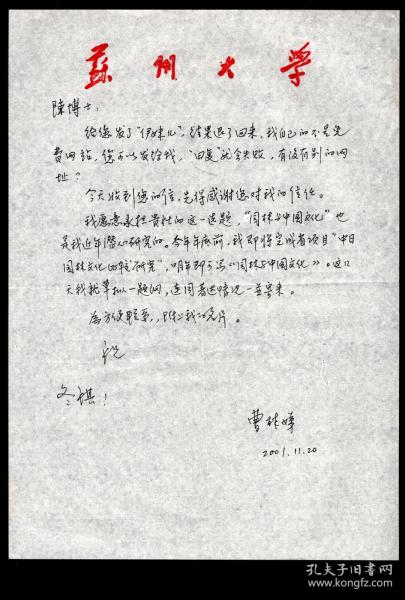 蘇州大学
陳博士:
给您发了"伊妹儿",结果退了回来,我自己的不是免
费网站,您可以发给我,"回复"就会失败,有没有别的网
址?
今天收到您的信,先得感谢您对我的信任。
我愿意承担贵社的这一选题,"园林与中国文化"也
是我近年潜心研究的。今年年底前,我即将完成省项目"中日
园林文化比较研究",明年即可写《园林与中国文化》。这几
天我就草拟一题纲,连同著述情况一並寄来。
为方便联系,附上我的名片。
祝
冬祺!
曹林娣
2001.11.20
孔夫子旧书网
www.kongfz.com